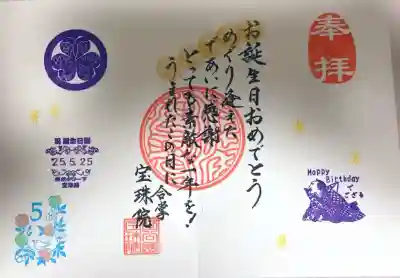 奉拝
お誕生日おめでとう
めぐり逢えた
であいに感謝
とっても素敵な一年を！
うまれたこの日に
合掌
宝珠院
25.5.25
宝珠院
5
Happy
Birthday
で
ござる